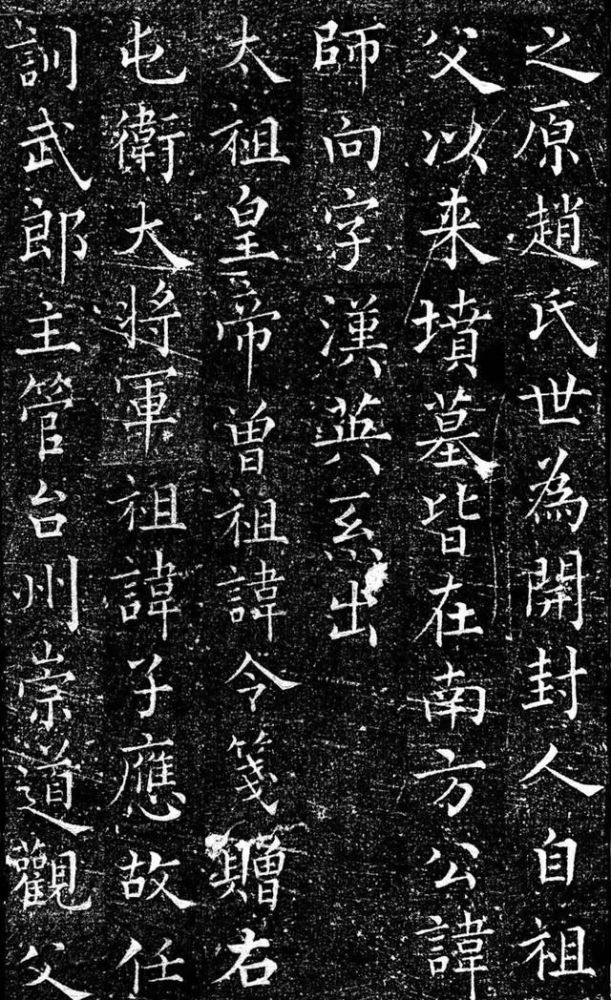 之原趙氏世為開封人自祖
父以来墳墓皆在南方公諱
師向字漢英系出
太祖皇帝曽祖諱令箋贈右
屯衛大将軍祖諱子應故任
訓武郎主管台州崇道觀父